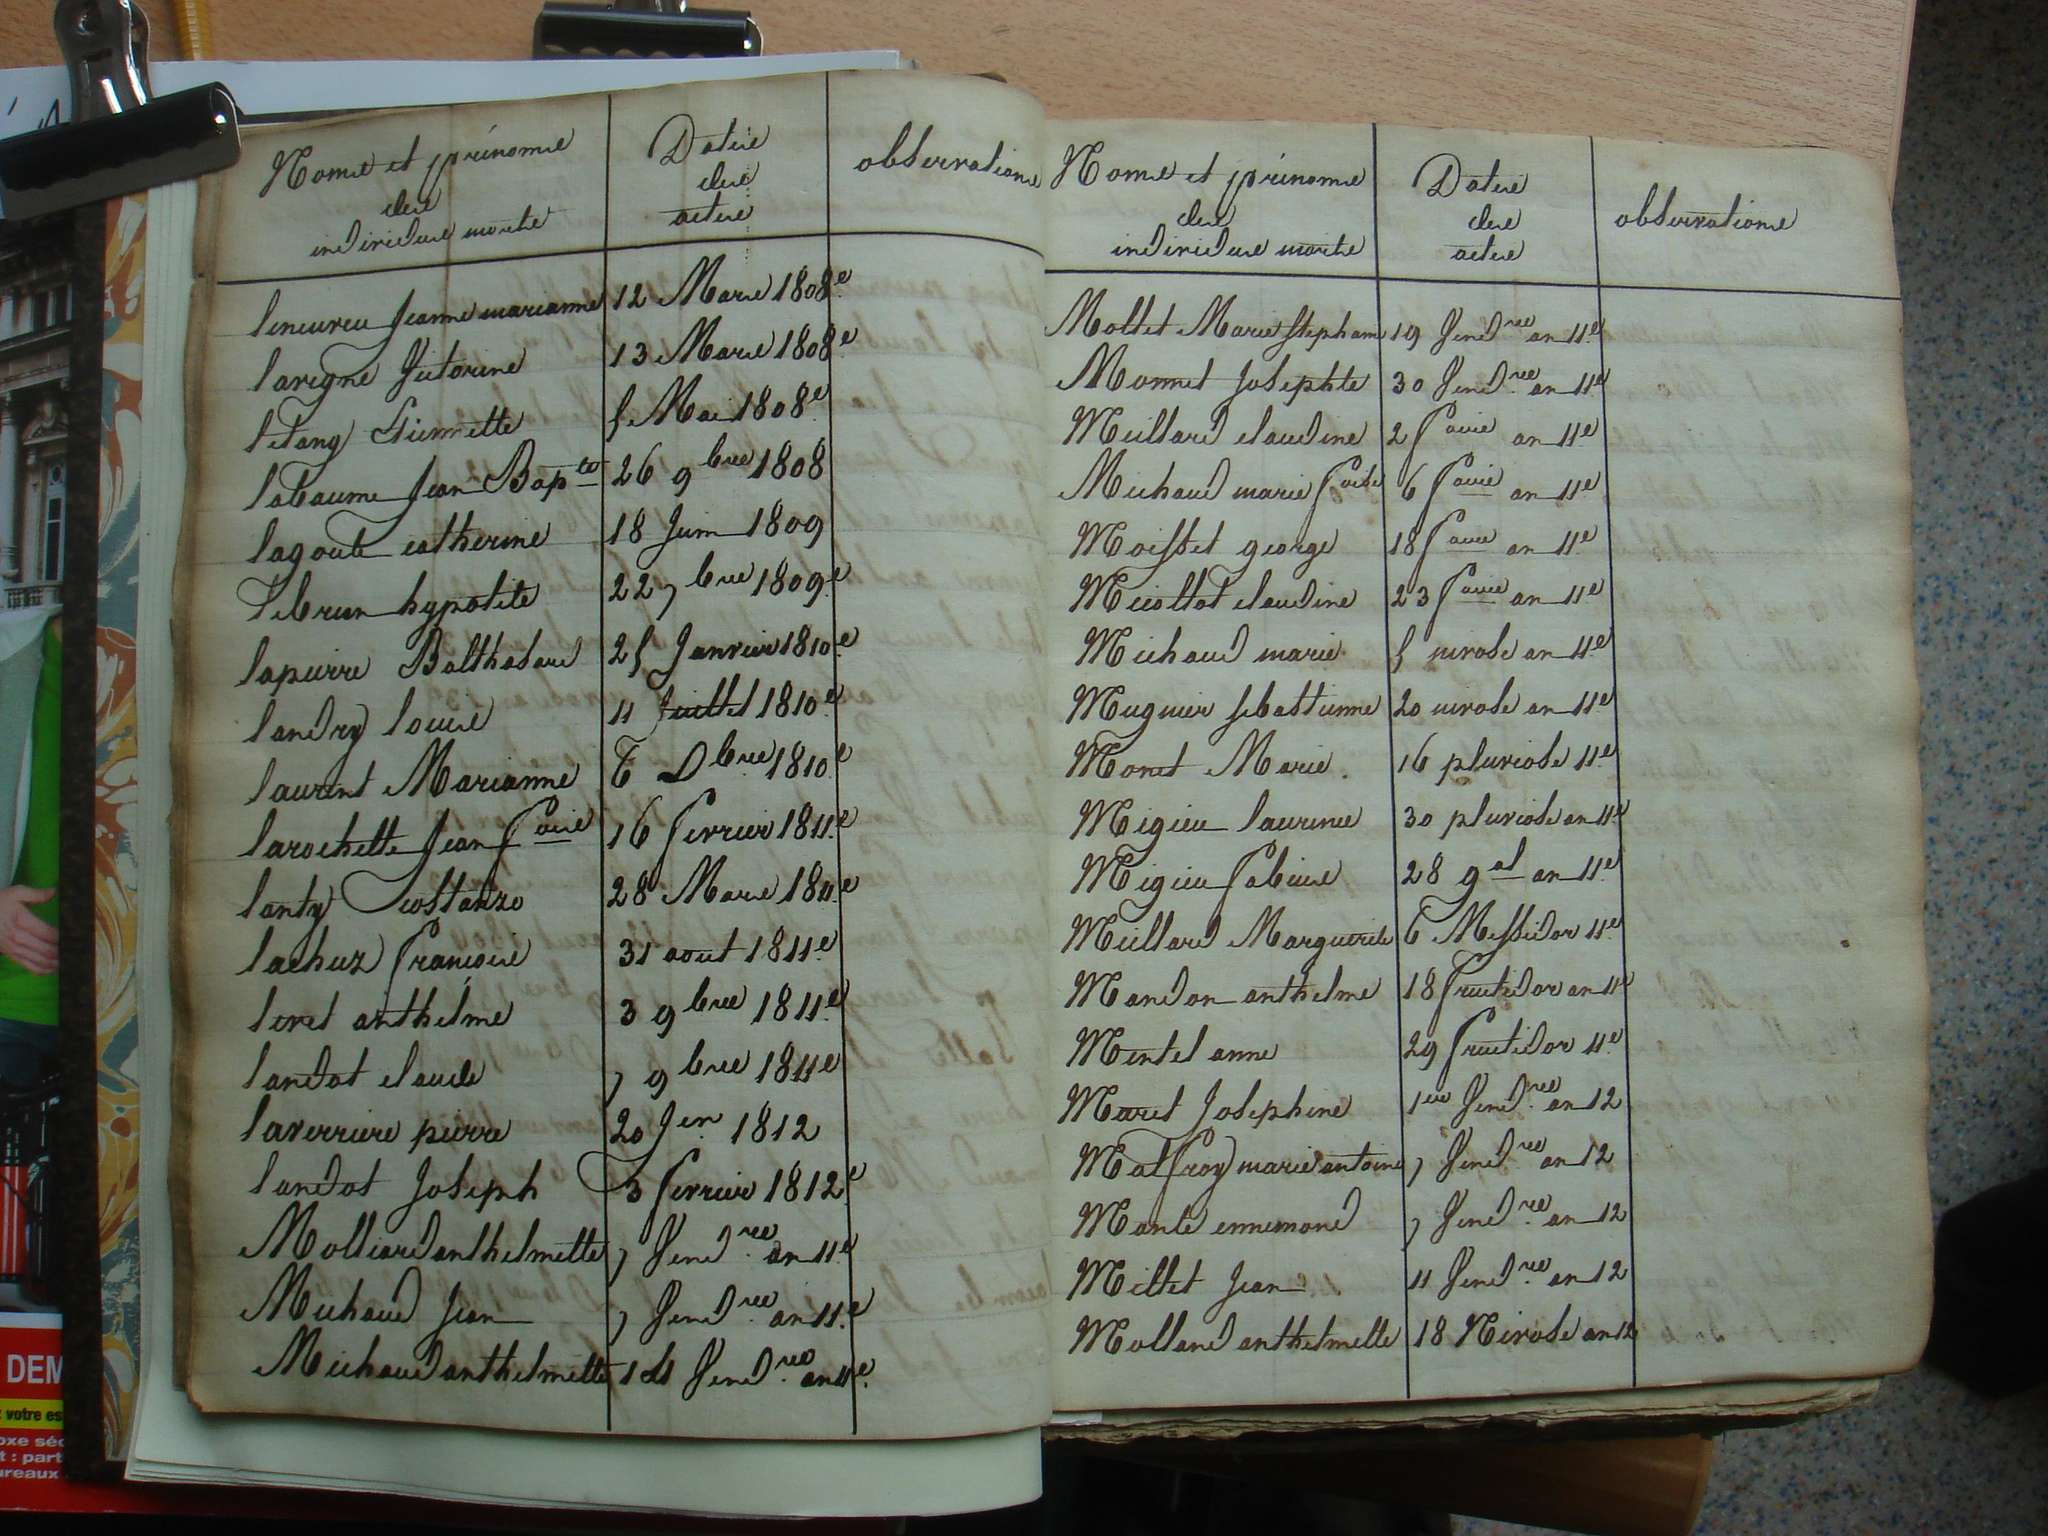 Noms et prénoms
des
individus morts
Dates
des
actes
observations
lemeureu Jeanne marianne 12 Mars 1808e
lavigne Victorine 13 Mars 1808e
letang Pierrette 5 Mai 1808e
labaume Jean Bapte 26 9bre 1808
lagoute catherine 18 Juin 1809
Lebrun hypolite 22 7bre 1809e
lapierre Balthasard 25 Janvier 1810e
landry louis 11 Juillet 1810e
laurent Marianne 6 Dbre 1810e
larochette Jean fois 16 fevrier 1811e
lanty 28 Mars 1811e
lachuz françois 31 aout 1811e
livet anthelme 3 9bre 1811e
landot claude 7 9bre 1811e
laverriere pierre 20 Jer 1812
landot Joseph 3 fevrier 1812e
Molliard anthelmette 7 Vendre an 11e
Michaud Jean 7 Vendre an 11e
Michaud anthelmette 14 Vendre an 11e
Noms et prénoms
des
individus morts
Dates
des
actes
observations
Mollet Marie Stephanie 19 Vendre an 11e
Monnet Josephte 30 Vendre an 11e
Millard claudine 2 faire an 11e
Michaud marie foise 6 faire an 11e
Moisset george 18 faire an 11e
Micollot claudine 23 faire an 11e
Michaud marie 5 nivose an 11e
Mugnier sebastienne 20 nivose an 11e
Monet Marie 16 pluviose 11e
Migieu laurence 30 pluviose an 11e
Migieu 28 gal an 11e
Millard Marguerite 6 Messidor 11e
Mandon anthelme 18 fructidor an 11e
Mintel anne 29 fructidor 11e
Maret Josephine 1er Vendre an 12
Malfroy marie antoine 7 Vendre an 12
Mante ennemond 7 Vendre an 12
Millet Jean 11 Vendre an 12
Molland anthelmette 18 Nivose an 12
DEM
votre es
oxe séc
t : part
ureaux